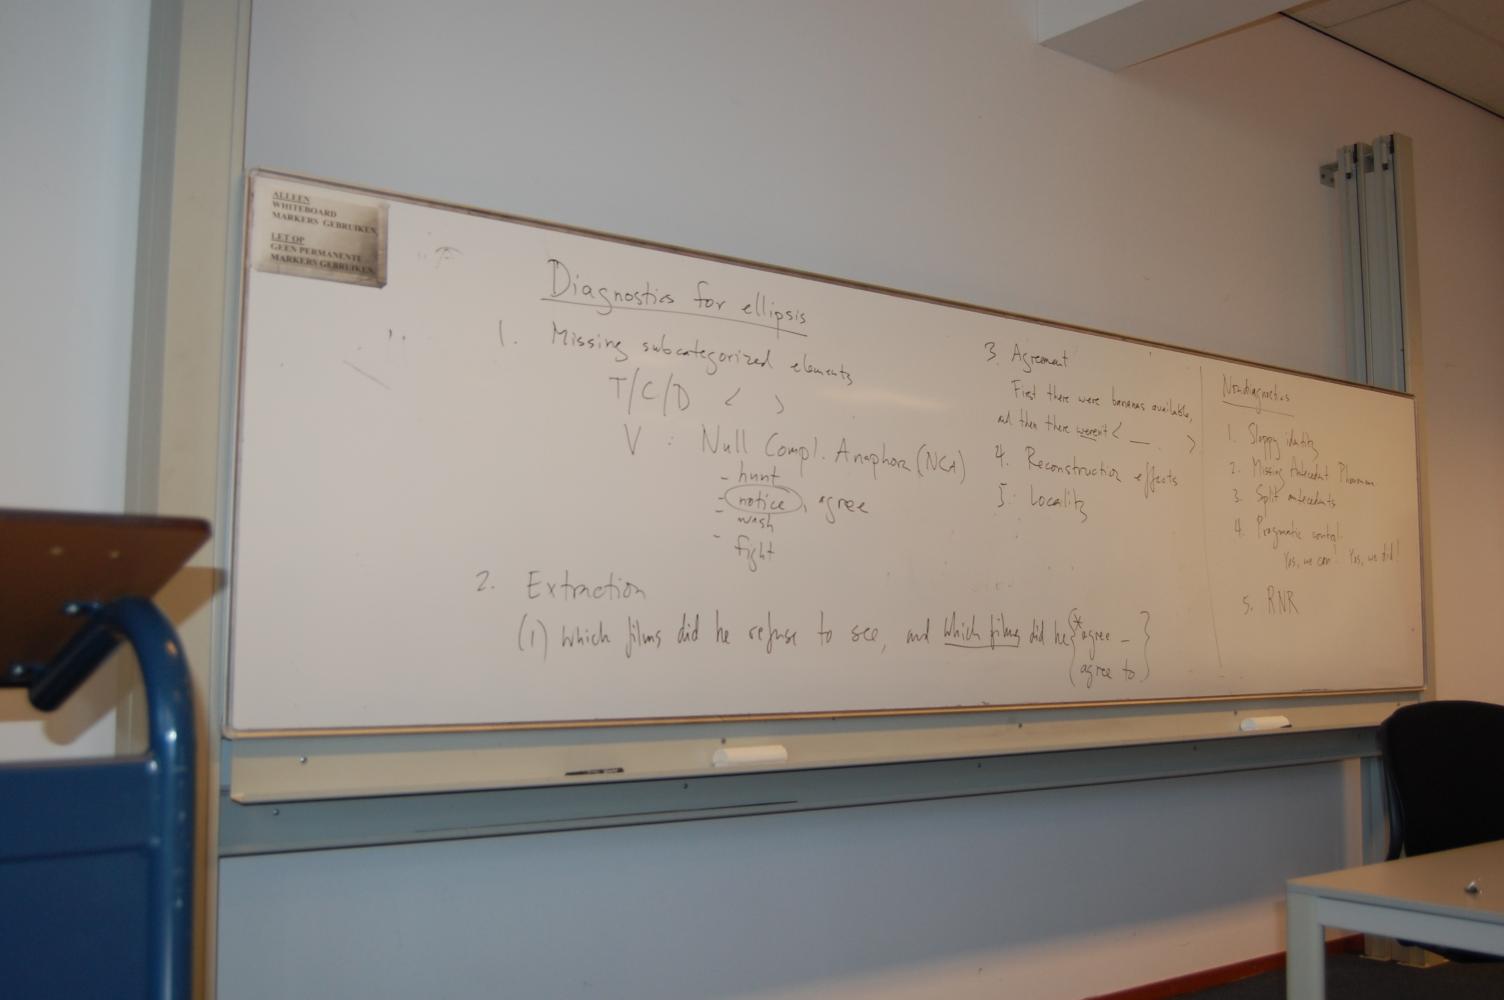 ALLEEN
WHITEBOARD
MARKERS GEBRUIKEN
LET OP
GEEN PERMANENTE
MARKERS GEBRUIKEN
Diagnostics for ellipsis
1. Missing subcategorized elements
T/C/D < >
V : Null Compl. Anaphora (NCA)
- hunt
- notice, agree
- wash
- fight
2. Extraction
(1) Which films did he refuse to see, and which films did he {*agree _
agree to}
3. Agreement
First there were bananas available,
and then there weren't < __ >
4. Reconstruction effects
5. Locality
Nondiagnostics
1. Sloppy identity
2. Missing Antecedent Phenomenon
3. Split antecedents
4. Pragmatic control
Yes, we can! Yes, we did!
5. RNR